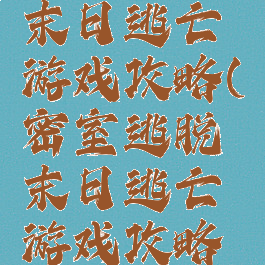 末日逃亡
游戏攻略(
密室逃脱
末日逃亡
游戏攻略